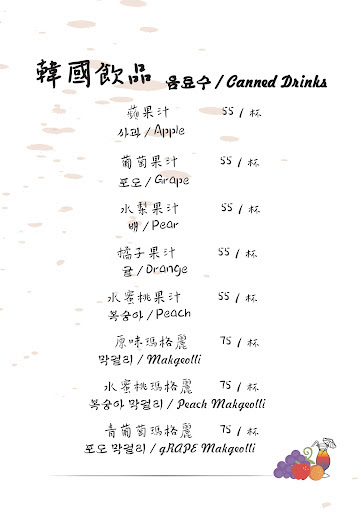 韓國飲品 음료수 / Canned Drinks
蘋果汁 55 / 杯
사과 / Apple
葡萄果汁 55 / 杯
포도 / Grape
水梨果汁 55 / 杯
배 / Pear
橘子果汁 55 / 杯
귤 / Orange
水蜜桃果汁 55 / 杯
복숭아 / Peach
原味瑪格麗 75 / 杯
막걸리 / Makgeolli
水蜜桃瑪格麗 75 / 杯
복숭아 막걸리 / Peach Makgeolli
青葡萄瑪格麗 75 / 杯
포도 막걸리 / gRAPE Makgeolli